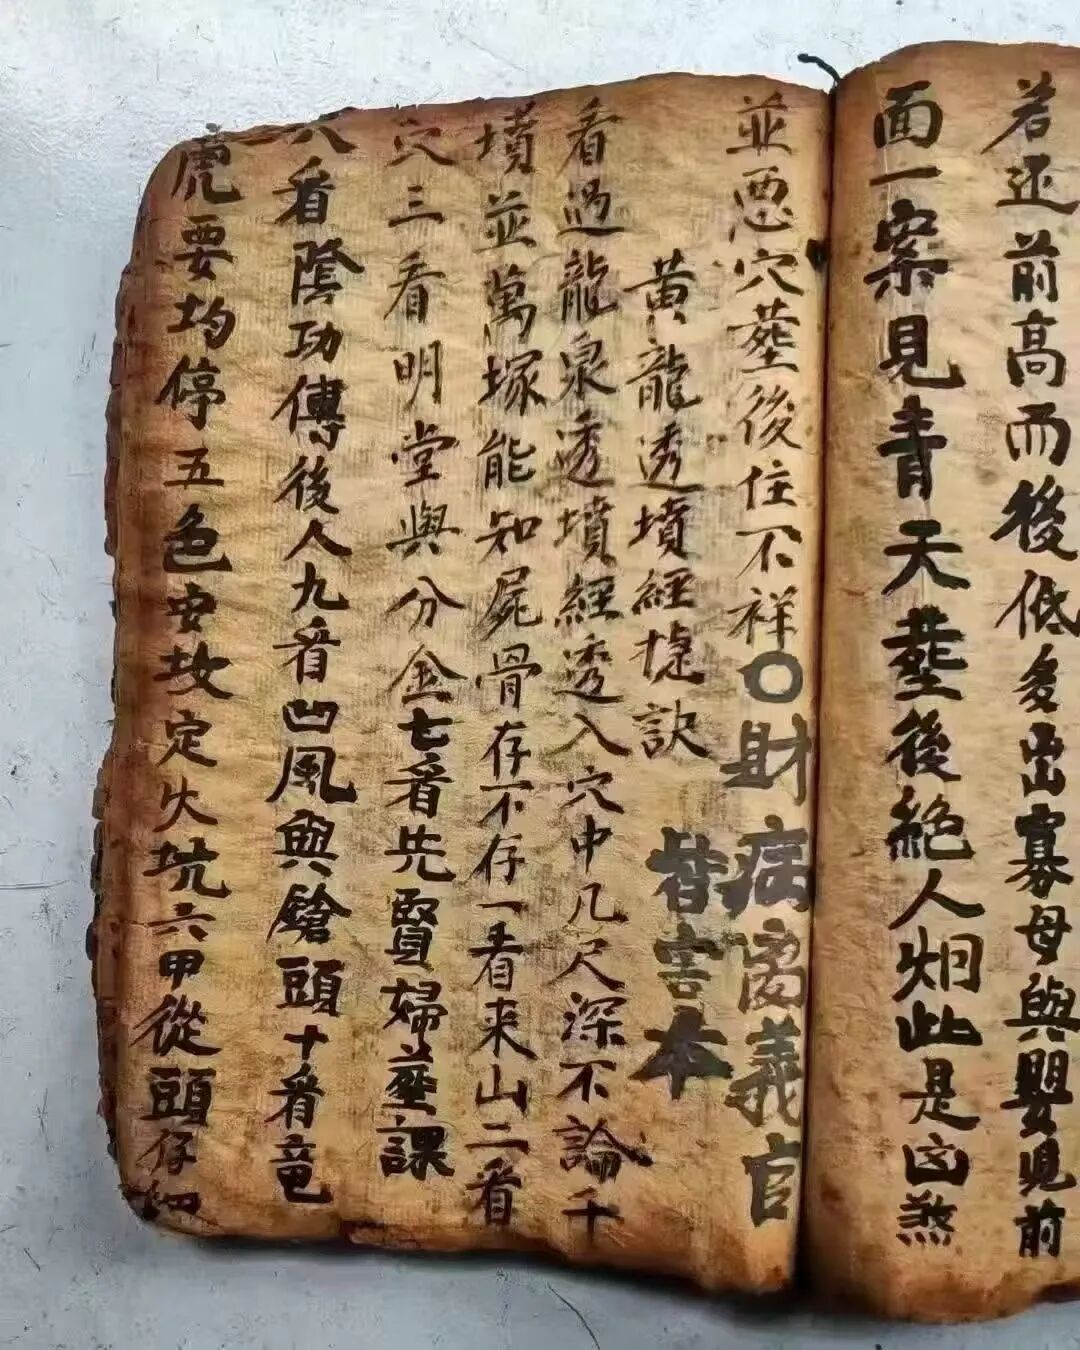 若还前高而後低多出寡母與嬰児前
面一案見青天葬後絕人烟此是凶煞
並惡穴葬後住不祥〇財病离義官
皆害本
黃龍透墳經捷訣
看過龍泉透墳經透入穴中几尺深不論千
墳並萬塚能知屍骨存不存一看来山二看
穴三看明堂與分金七看先賢婦葬課
八看陰功傳後人九看凹風與鎗頭十看竜
虎要均停五色安坟定火坑六甲從頭仔細